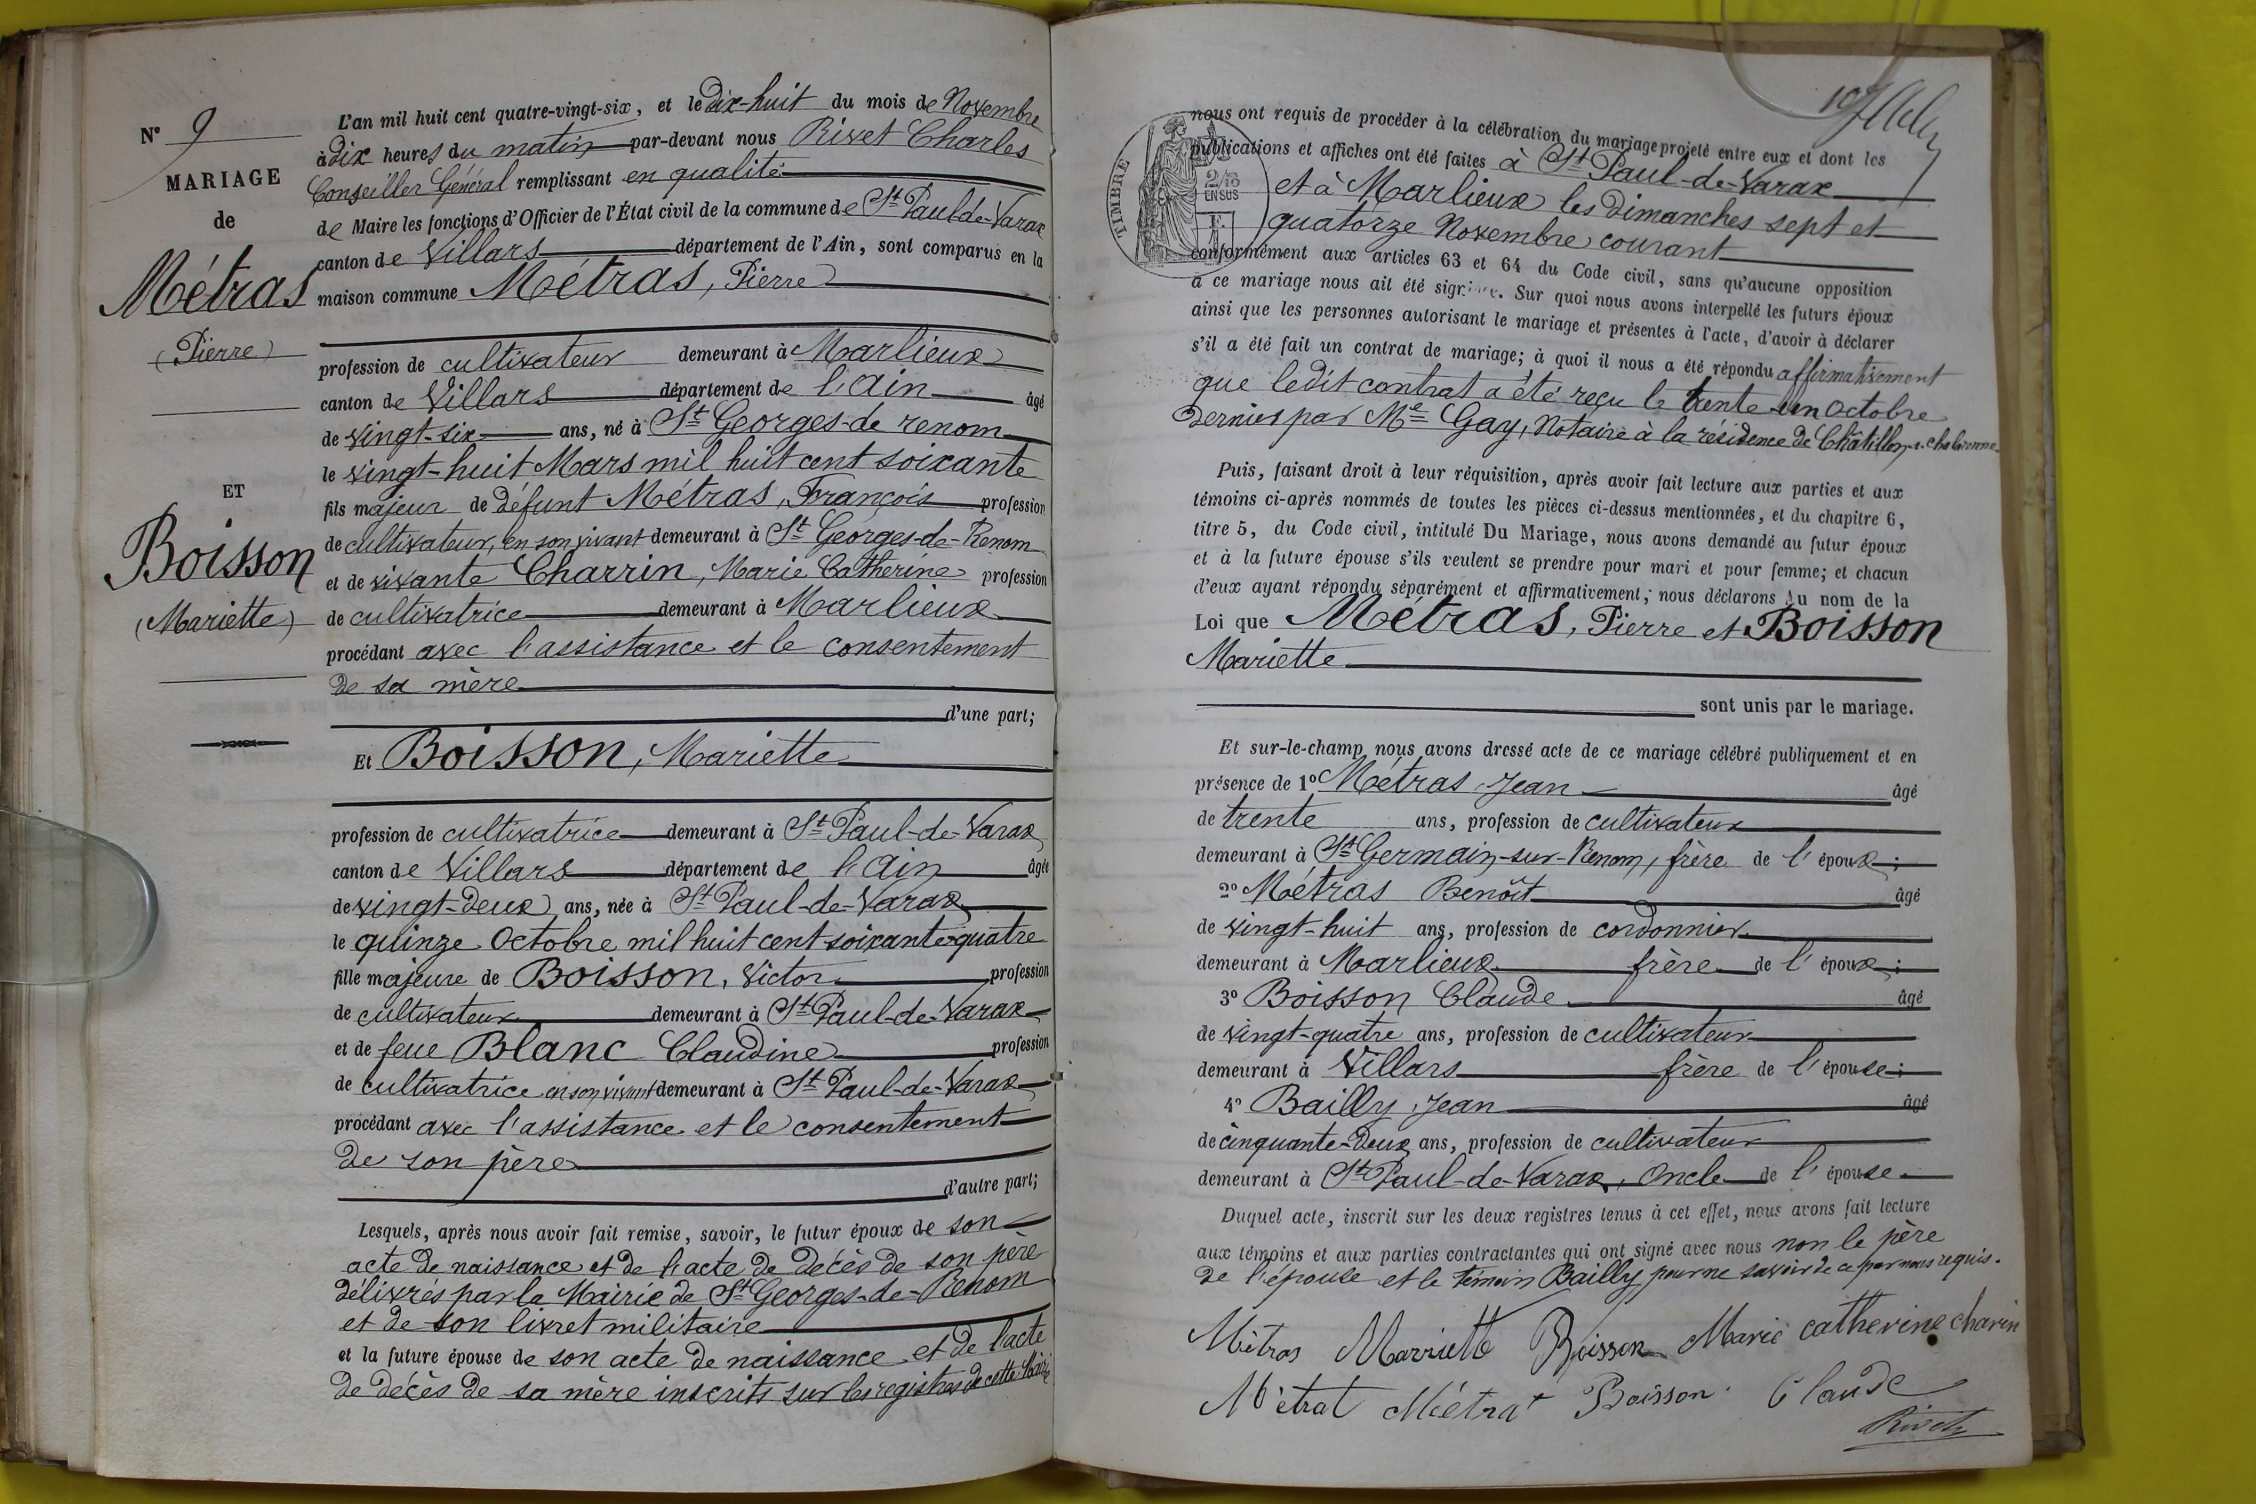 N° 9
MARIAGE
de
Métras
(Pierre)
ET
Boisson
(Mariette)
L'an mil huit cent quatre-vingt-six, et le dix-huit du mois de Novembre
à dix heures du matin par-devant nous Rivet Charles
Conseiller Général remplissant en qualité
de Maire les fonctions d'Officier de l'État civil de la commune de St Paul-de-Varax
canton de Villars département de l'Ain, sont comparus en la
maison commune Métras, Pierre
profession de cultivateur demeurant à Marlieux
canton de Villars département de l'Ain âgé
de vingt-six ans, né à St Georges-de renom
le vingt-huit Mars mil huit cent soixante
fils majeur de défunt Métras, François profession
de cultivateur, en son vivant demeurant à St Georges-de-Renom
et de vivante Charrin, Marie Catherine profession
de cultivatrice demeurant à Marlieux
procédant avec l'assistance et le consentement
de sa mère
d'une part;
Et Boisson, Mariette
profession de cultivatrice demeurant à St Paul-de-Varax
canton de Villars département de l'Ain âgée
de vingt-deux ans, née à St Paul-de-Varax
le quinze Octobre mil huit cent soixante-quatre
fille majeure de Boisson, Victor profession
de cultivateur demeurant à St Paul-de-Varax
et de feue Blanc Claudine profession
de cultivatrice en son vivant demeurant à St Paul-de-Varax
procédant avec l'assistance et le consentement
de son père
d'autre part;
Lesquels, après nous avoir fait remise, savoir, le futur époux de son
acte de naissance et de l'acte de décès de son père
délivrés par la Mairie de St Georges-de-Renom
et de son livret militaire
et la future épouse de son acte de naissance et de l'acte
de décès de sa mère inscrits sur les registres de cette Mairie
TIMBRE
2/10
EN SUS
nous ont requis de procéder à la célébration du mariage projeté entre eux et dont les
publications et affiches ont été faites à St Paul-de-Varax
et à Marlieux les dimanches sept et
quatorze Novembre courant
conformément aux articles 63 et 64 du Code civil, sans qu'aucune opposition
à ce mariage nous ait été signifiée. Sur quoi nous avons interpellé les futurs époux
ainsi que les personnes autorisant le mariage et présentes à l'acte, d'avoir à déclarer
s'il a été fait un contrat de mariage; à quoi il nous a été répondu affirmativement
que ledit contrat a été reçu le trente-un Octobre
dernier par Me Gay, Notaire à la résidence de Châtillon-s-Chalaronne
Puis, faisant droit à leur réquisition, après avoir fait lecture aux parties et aux
témoins ci-après nommés de toutes les pièces ci-dessus mentionnées, et du chapitre 6,
titre 5, du Code civil, intitulé Du Mariage, nous avons demandé au futur époux
et à la future épouse s'ils veulent se prendre pour mari et pour femme; et chacun
d'eux ayant répondu séparément et affirmativement; nous déclarons au nom de la
Loi que Métras, Pierre et Boisson
Mariette
sont unis par le mariage.
Et sur-le-champ nous avons dressé acte de ce mariage célébré publiquement et en
présence de 1° Métras Jean âgé
de trente ans, profession de cultivateur
demeurant à St Germain-sur-Renom, frère de l'époux;
2° Métras Benoît âgé
de vingt-huit ans, profession de cordonnier
demeurant à Marlieux frère de l'époux;
3° Boisson Claude âgé
de vingt-quatre ans, profession de cultivateur
demeurant à Villars frère de l'épouse;
4° Bailly Jean âgé
de cinquante-deux ans, profession de cultivateur
demeurant à St Paul-de-Varax, Oncle de l'épouse
Duquel acte, inscrit sur les deux registres tenus à cet effet, nous avons fait lecture
aux témoins et aux parties contractantes qui ont signé avec nous non le père
de l'épouse et le témoin Bailly pour ne savoir de ce par nous requis.
Métras Marriette Boisson Marie catherine charin
Métrat Métrat Boisson Claude
Rivet